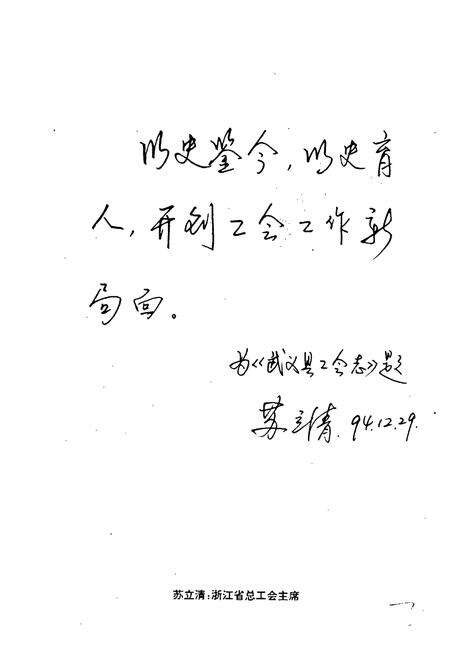 以史鉴今，以史育
人，开创工会工作新
局面。
为《武义县工会志》题
苏立清.94.12.29.
苏立清:浙江省总工会主席